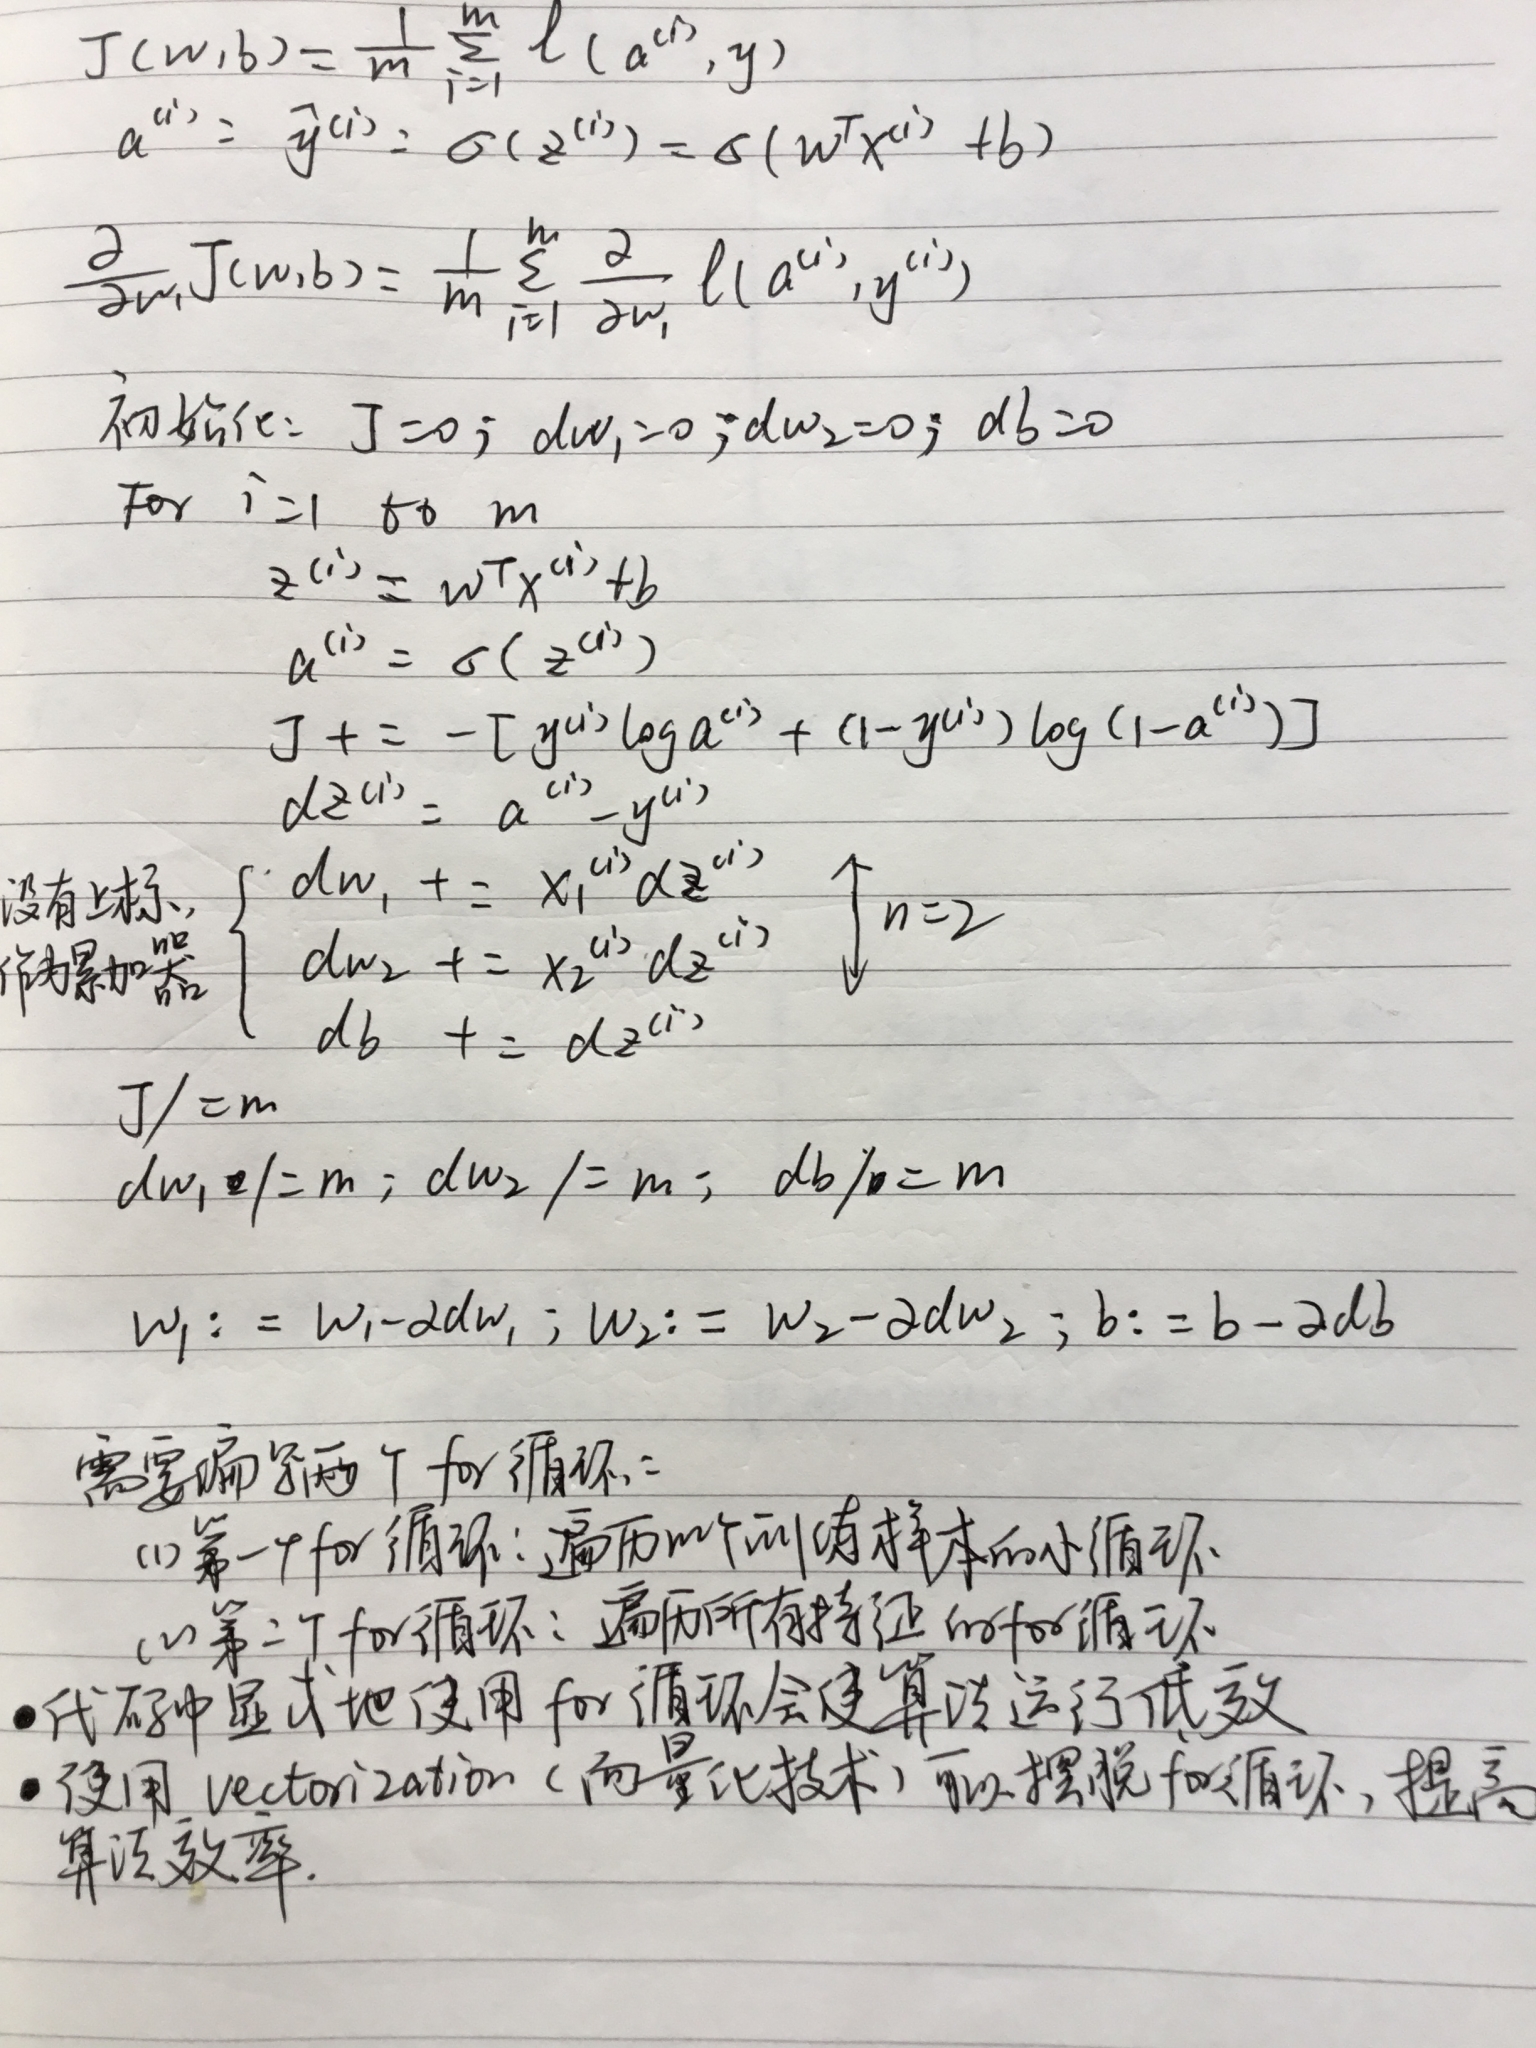 J(w,b) = 1/m Σ_{i=1}^{m} l(a^(i), y)
a^(i) = ŷ^(i) = σ(z^(i)) = σ(w^T x^(i) + b)
∂/∂w₁ J(w,b) = 1/m Σ_{i=1}^{m} ∂/∂w₁ l(a^(i), y^(i))
初始化: J=0; dw₁=0; dw₂=0; db=0
For i=1 to m
z^(i) = w^T x^(i) + b
a^(i) = σ(z^(i))
J += -[y^(i) log a^(i) + (1-y^(i)) log(1-a^(i))]
dz^(i) = a^(i) - y^(i)
没有上标,
作为累加器
dw₁ += x₁^(i) dz^(i)
dw₂ += x₂^(i) dz^(i)
n=2
db += dz^(i)
J/=m
dw₁ /=m; dw₂ /=m; db /=m
w₁:=w₁-αdw₁; w₂:=w₂-αdw₂; b:=b-αdb
需要编写两个for循环:
(1)第一个for循环:遍历m个训练样本的小循环
(2)第二个for循环:遍历所有特征的for循环
•代码中显式地使用for循环会使算法运行低效
•使用vectorization(向量化技术)可以摆脱for循环,提高
算法效率.